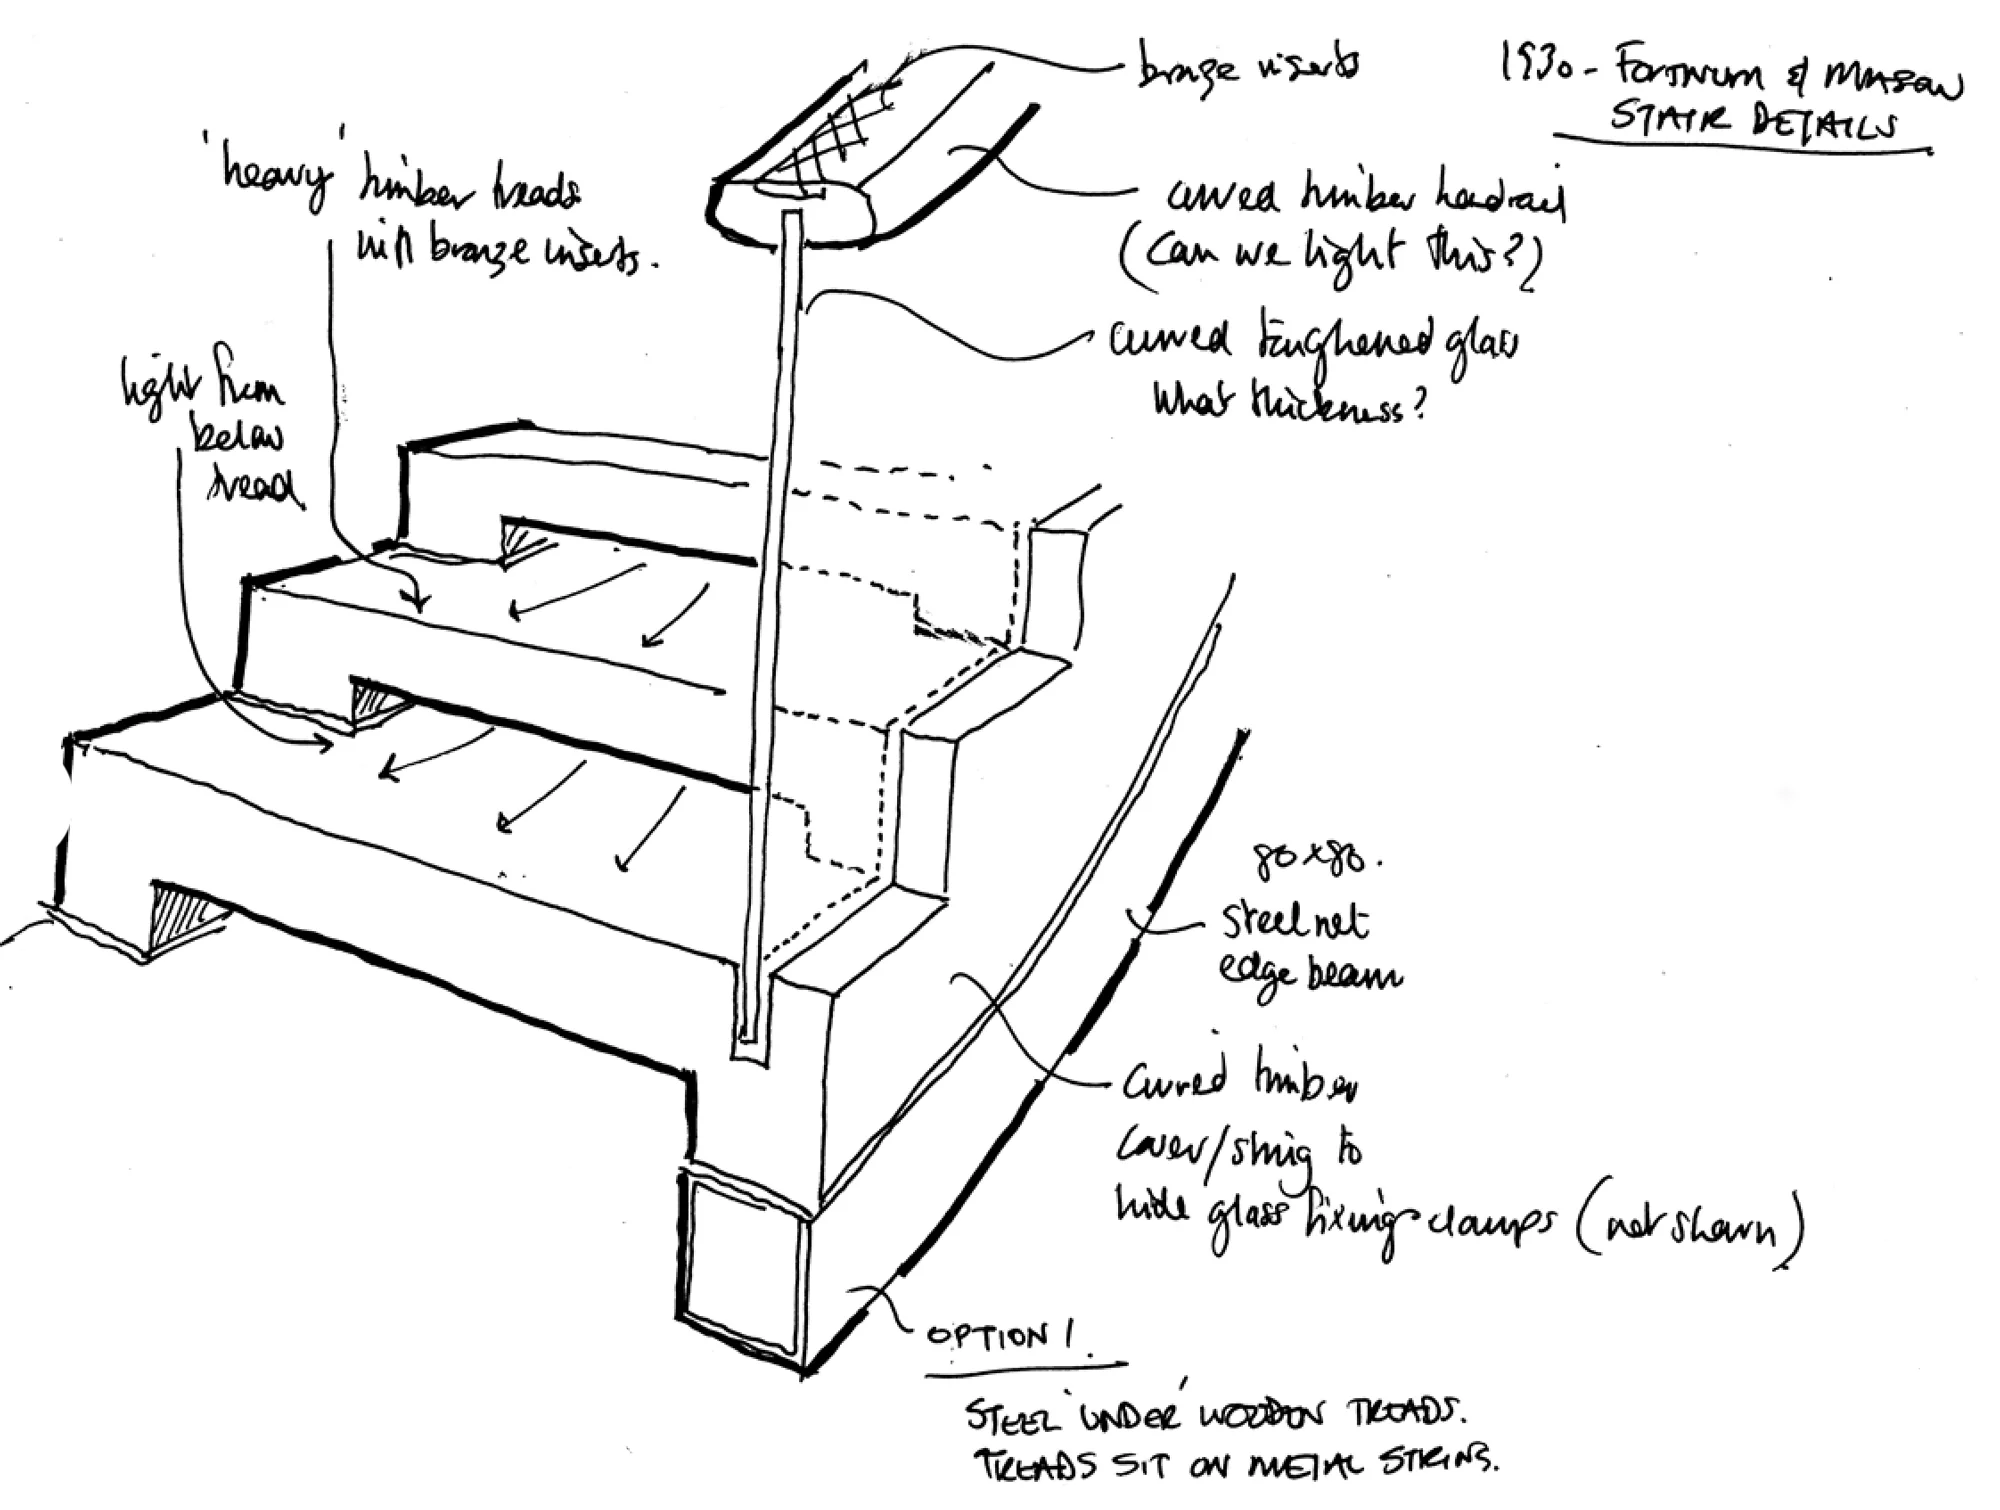 1930 - Fortnum & Mason
STAIR DETAILS
bronze inserts
'heavy' timber treads
with bronze inserts.
curved timber handrail
(can we light this?)
curved toughened glass
What thickness?
light from
below
tread
80x80.
steel
edge beam
Curved timber
cover/string to
hide glass fixing clamps (not shown)
OPTION 1.
STEEL 'UNDER' WOODEN TREADS.
TREADS SIT ON METAL STRING.